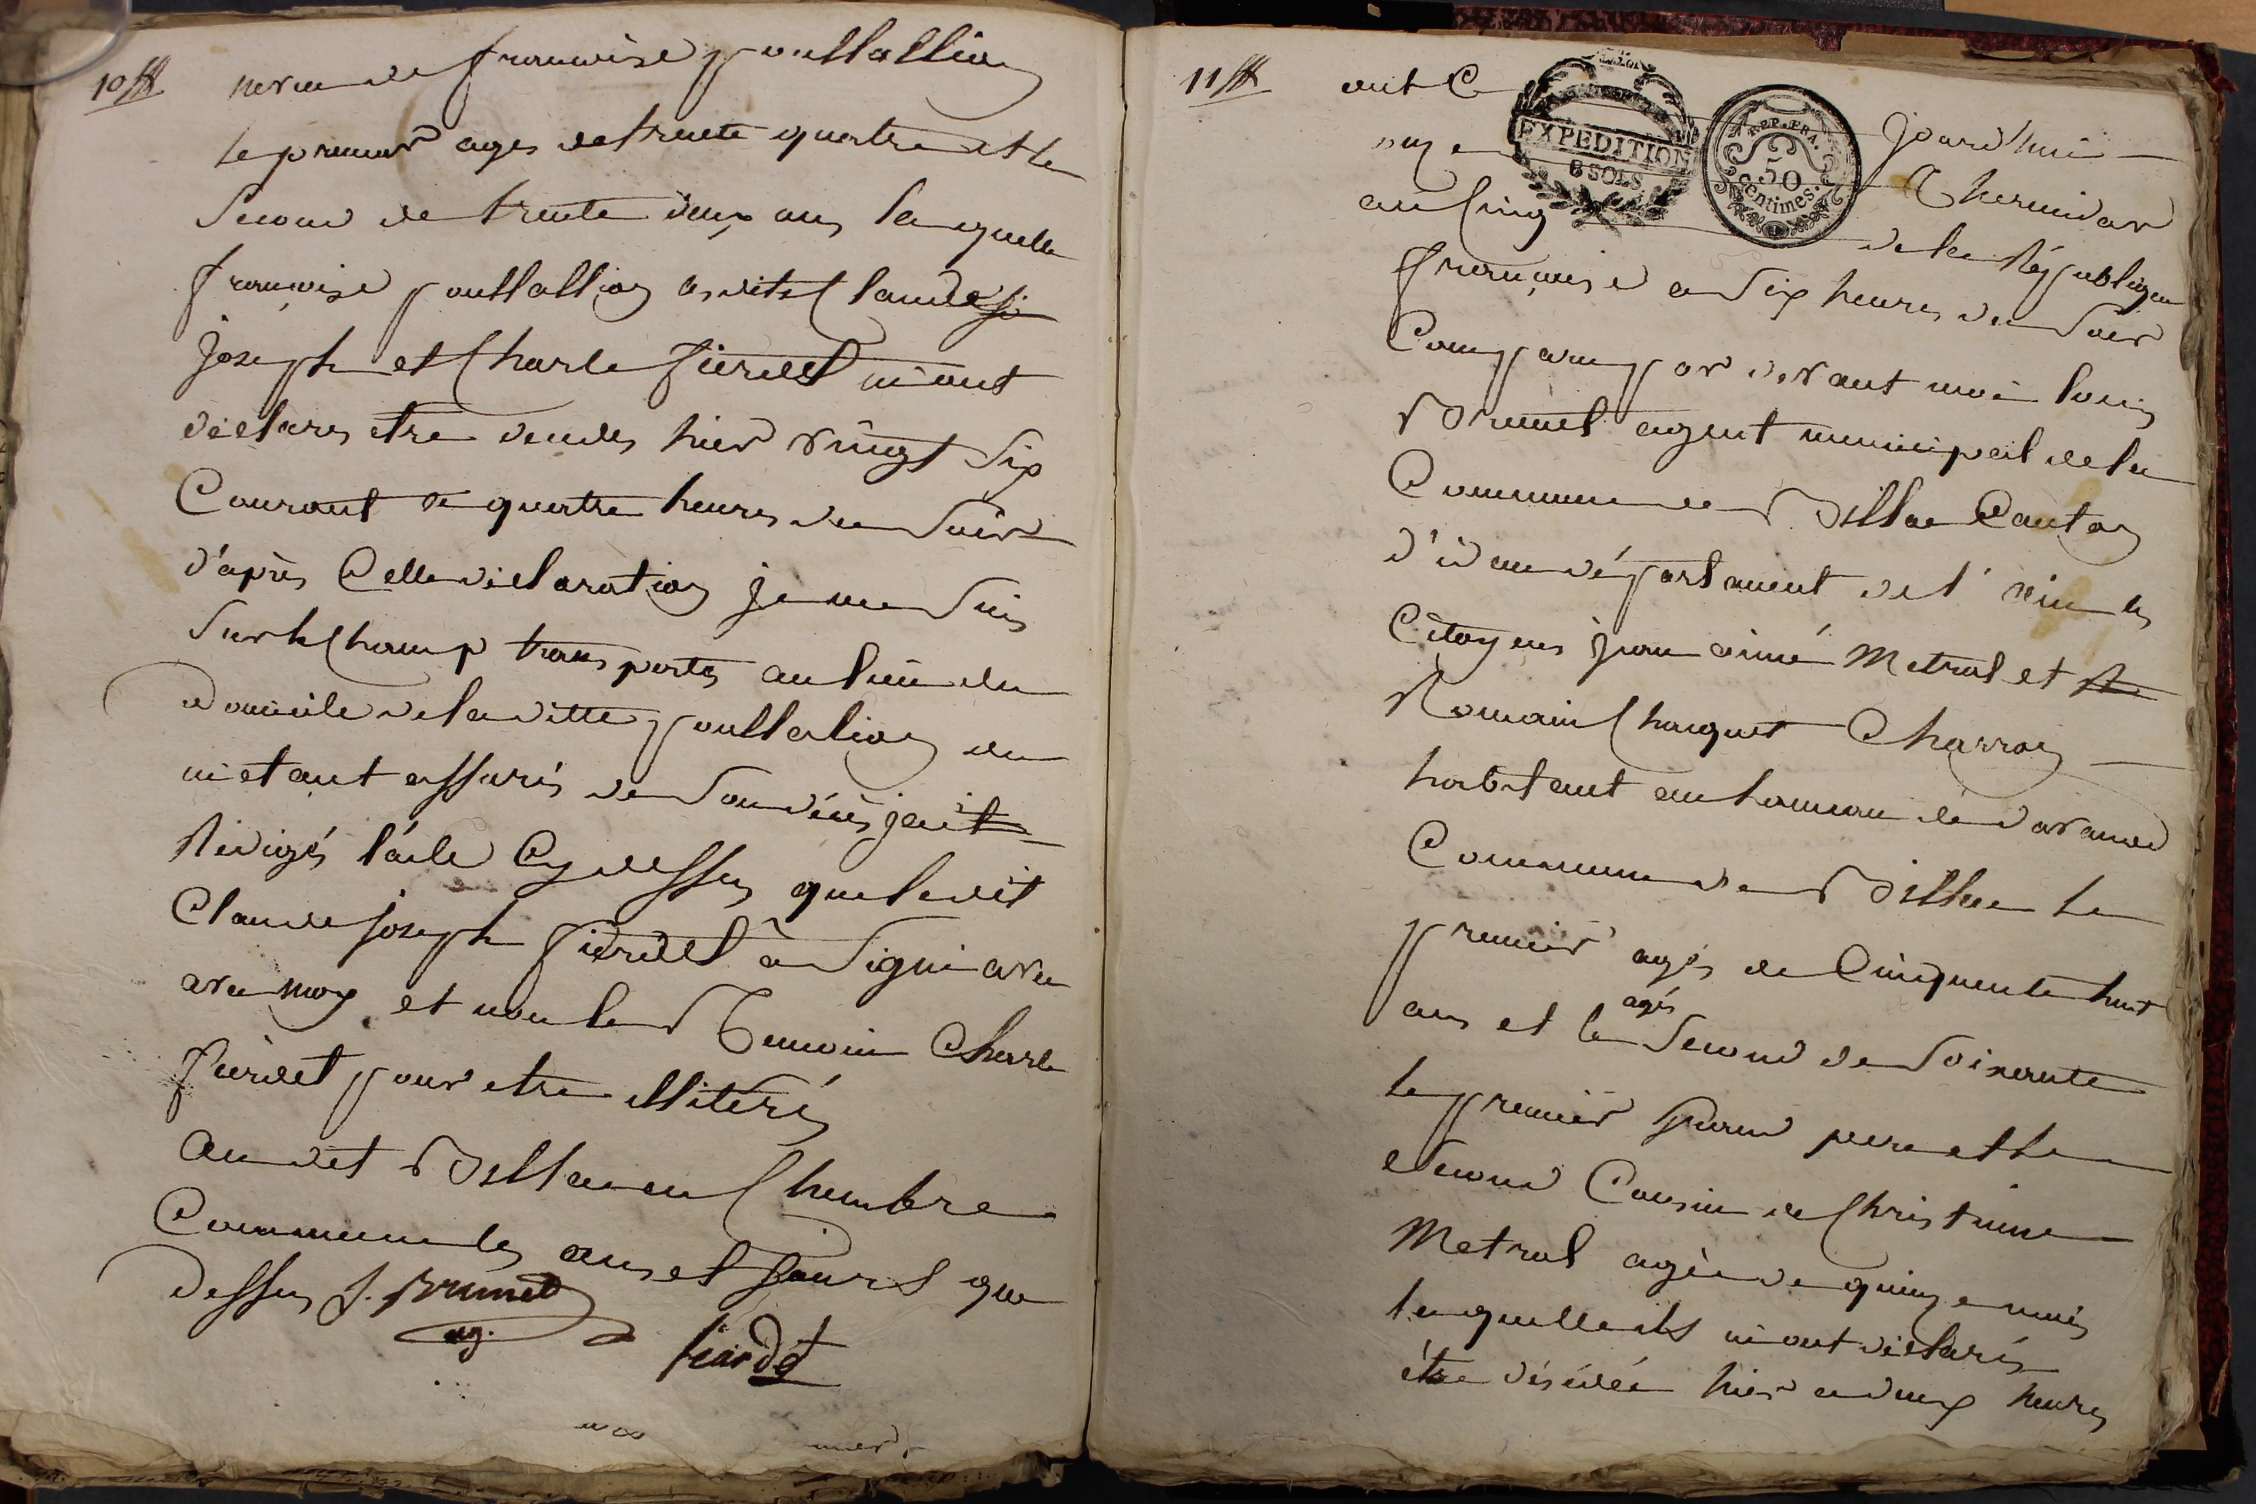 10
neveu de françoise poullallion
le premier ages de trente quatre et le
Second de trente deux ans laquelle
françoise poullallion lesdits Claude
joseph et Charle fierdet m'ont
déclarés etre décedés hier vingt six
Courant a quatre heures du Soir
d'après Cette déclaration je me Suis
Sur le Champ transportés au lieu du
domicile de la ditte poullalion
m'etant assurés de Son décés jai
Rédigés l'acte Cy dessus que le dit
Claude joseph fierdet a Signé avec
avec moy et non le Temoin Charle
fierdet pour etre illitérés
audit Villa en Chambre
Commune les ans et jours que
dessus J. Brunet
ag.
fiardet
11
aujourd'huis
EXPEDITION
8 SOLS
REP. FRA.
50
Centimes.
onze Thermidor
an Cinq de la République
françoise a Six heures du Soir
Comparu par devant moi louis
Brunet agent municipal de la
Commune de Villa Canton
d'idem département de l'ain les
Citoyens jean aimé Metral et
Romain Charguet Charron
habitant au hameau de
Commune de Villa le
premier agés de Cinquante huit
ans et le agés Second de Soixante
le premier Grand pere et le
Second Cousin de Christinne
Metral agée de quinze mois
laquelle ils m'ont déclarés
étre décédée hier a deux heures